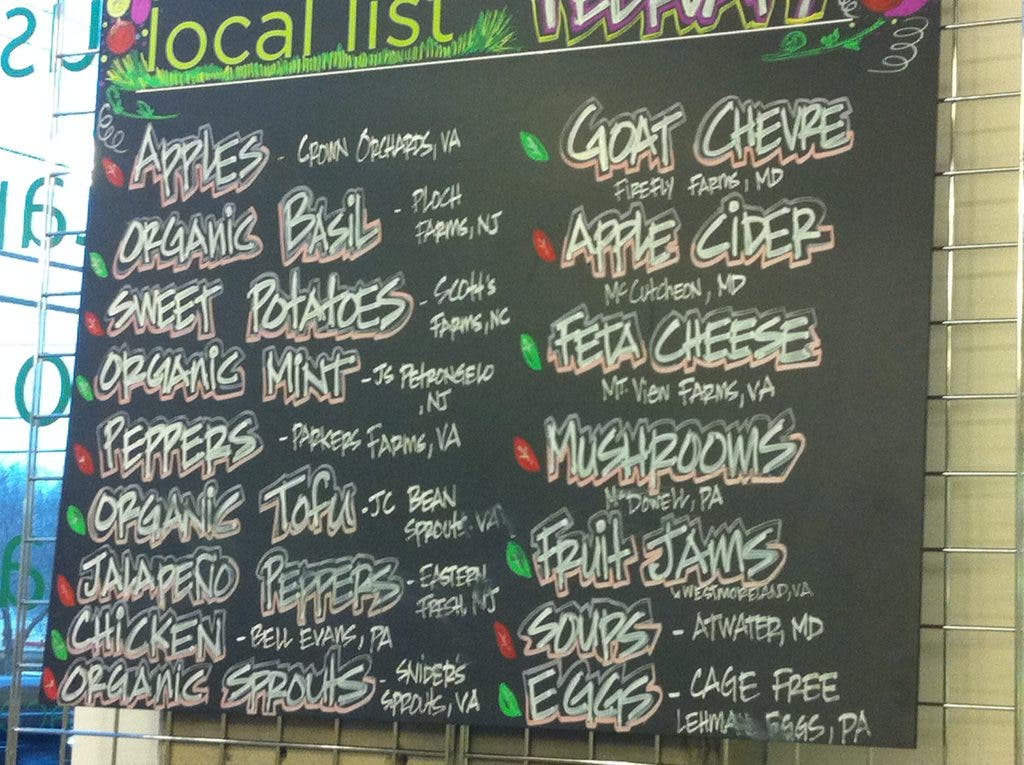 local list
FEBRUARY
APPLES - CROWN ORCHARDS, VA
ORGANIC BASIL - PLOCH
FARMS, NJ
SWEET POTATOES - SCOTT'S
FARMS, NC
ORGANIC MINT - JS PETRONGELO
, NJ
PEPPERS - PARKERS FARMS, VA
ORGANIC TOFU - JC BEAN
SPROUTS VA
JALAPEÑO PEPPERS - EASTERN
FRESH, NJ
CHICKEN - BELL EVANS, PA
ORGANIC SPROUTS - SNIDER'S
SPROUTS, VA
GOAT CHEVRE
FIREFLY FARMS, MD
APPLE CIDER
MCCUTCHEON, MD
FETA CHEESE
MT. VIEW FARMS, VA
MUSHROOMS
MCDOWELL, PA
FRUIT JAMS
WESTMORELAND, VA
SOUPS - ATWATER, MD
EGGS - CAGE FREE
LEHMAN EGGS, PA